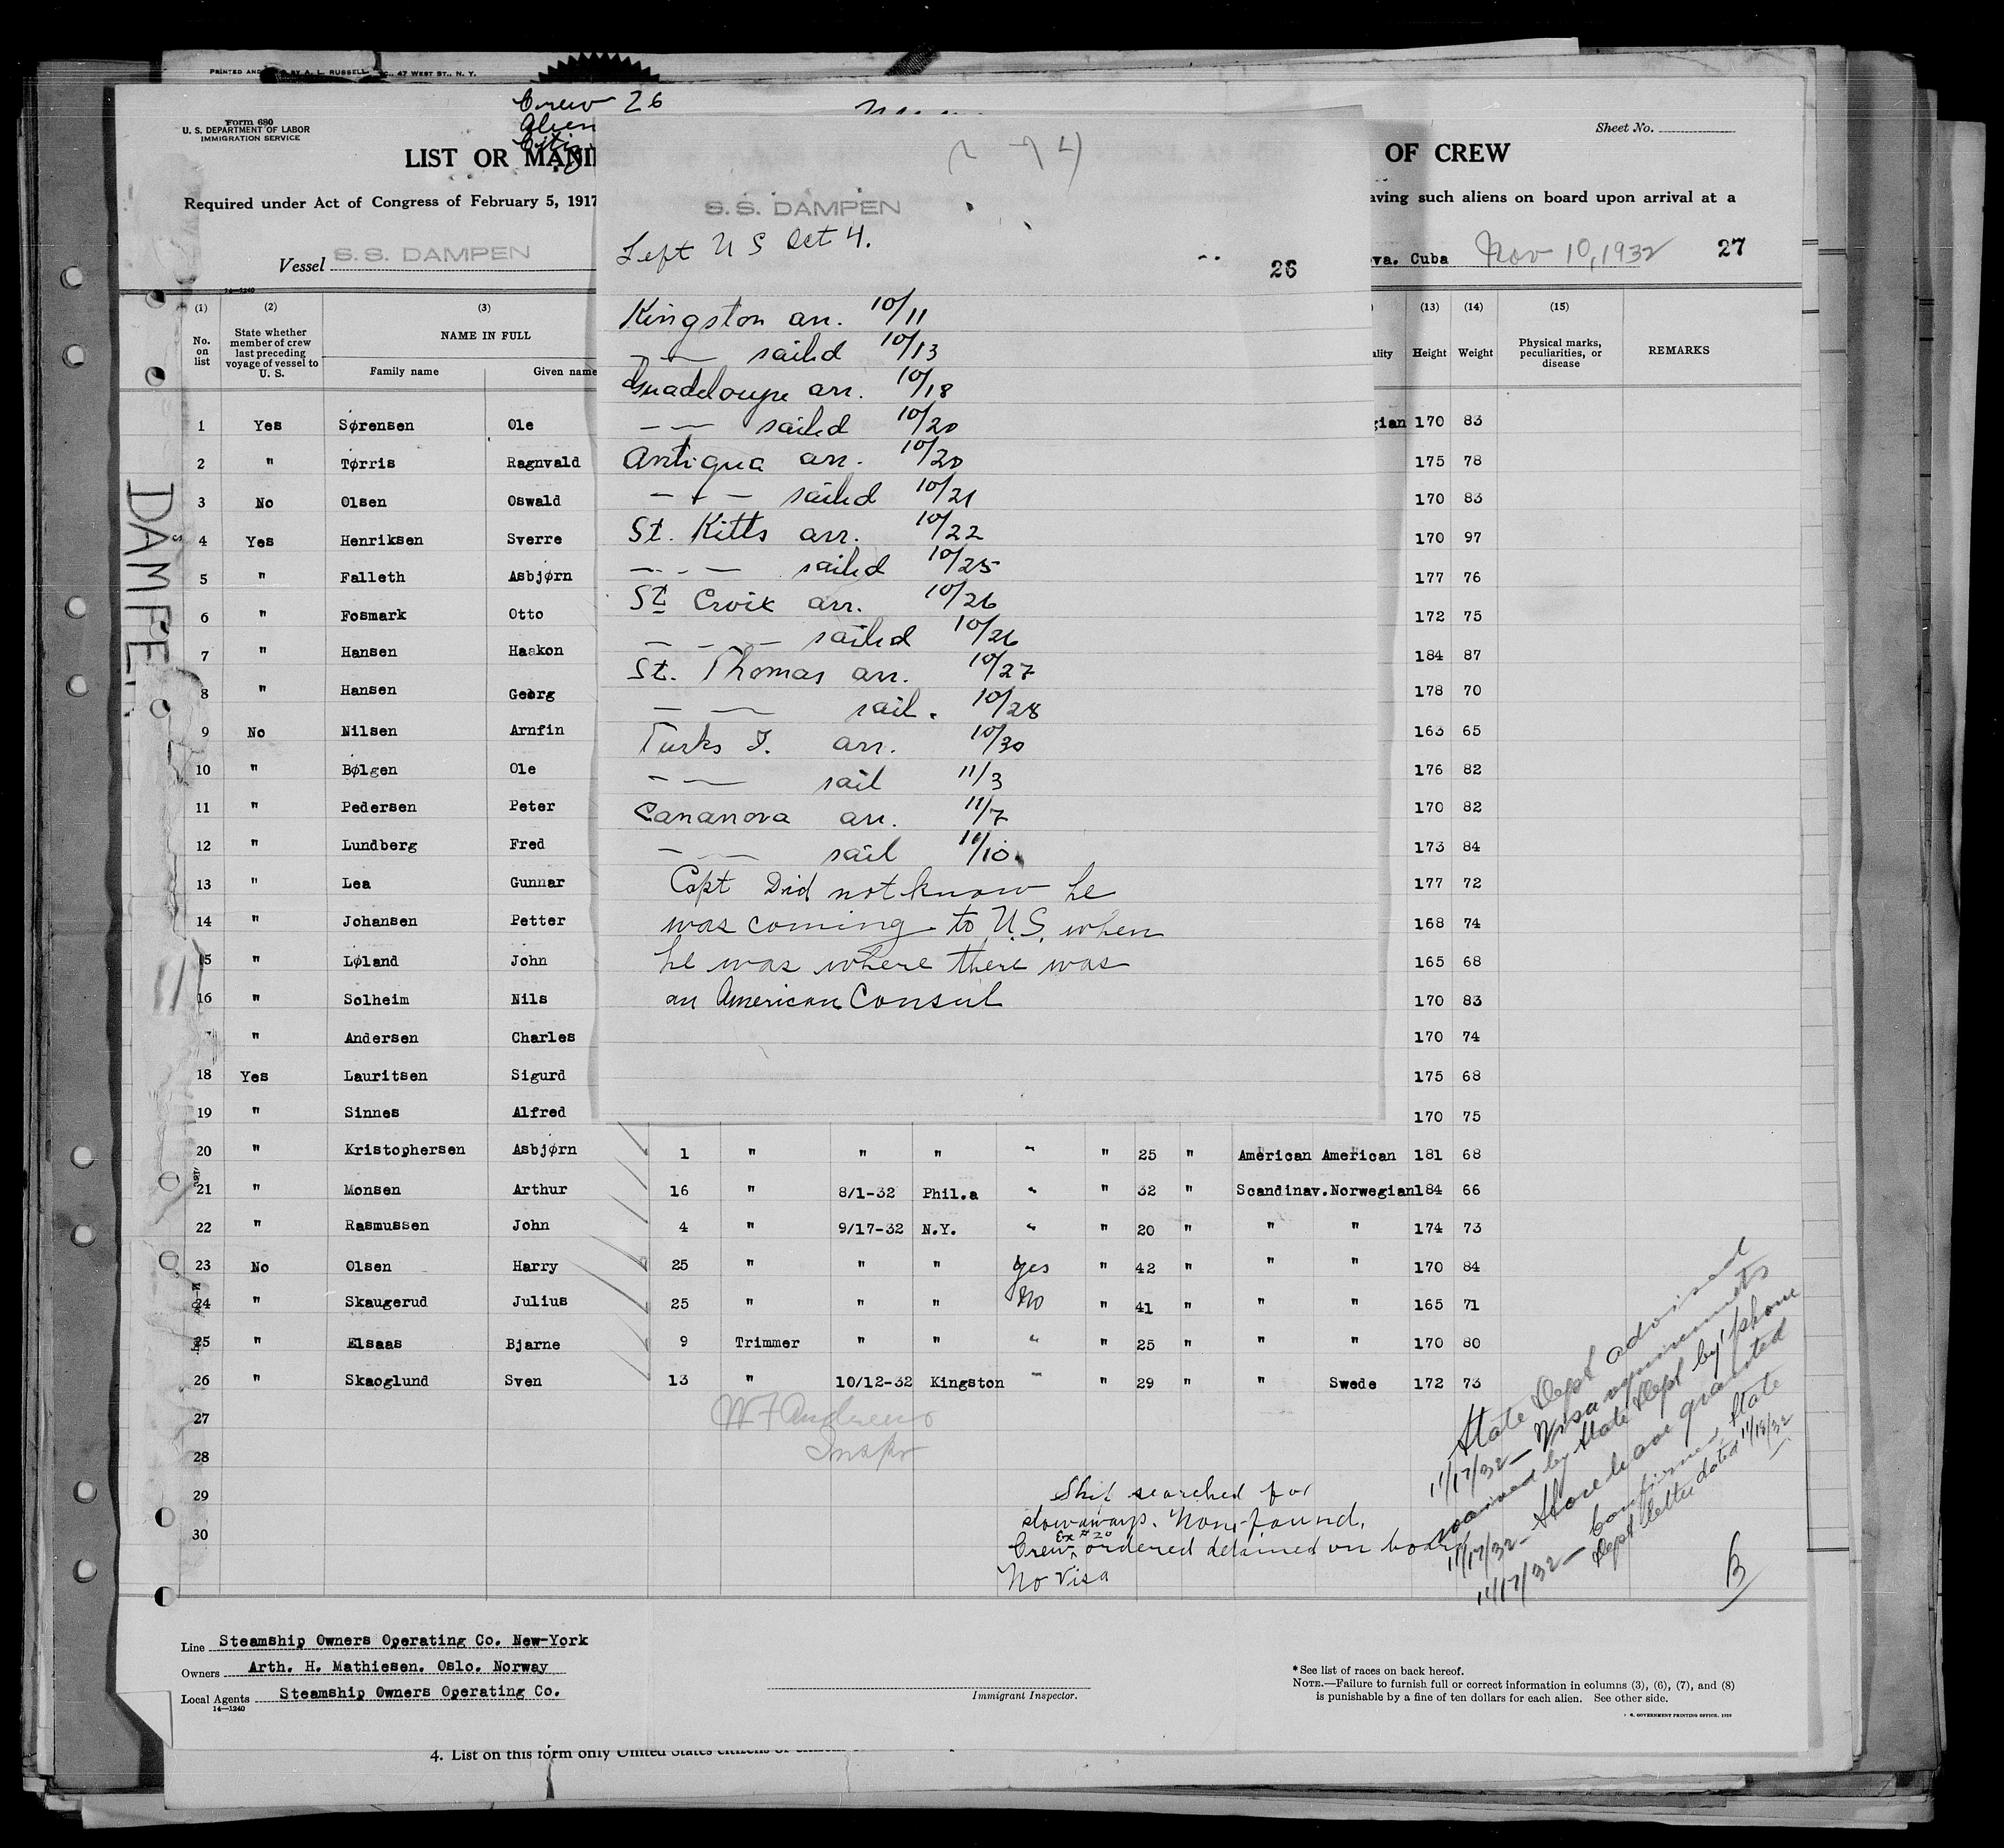 PRINTED AND
BY A. L. RUSSELL
47 WEST ST., N. Y.
Crew 26
Alien
Form 680
U. S. DEPARTMENT OF LABOR
IMMIGRATION SERVICE
Sheet No.
LIST OR MANI
OF CREW
Required under Act of Congress of February 5, 1917
aving such aliens on board upon arrival at a
Vessel S. S. DAMPEN
va. Cuba Nov 10, 1932 27
14—1240
(1) (2) (3) (13) (14) (15)
No. on list
State whether member of crew last preceding voyage of vessel to U. S.
NAME IN FULL
Family name Given name
ality Height Weight
Physical marks, peculiarities, or disease
REMARKS
1 Yes Sørensen Ole gian 170 83
2 " Tørris Ragnvald 175 78
3 No Olsen Oswald 170 83
4 Yes Henriksen Sverre 170 97
5 " Falleth Asbjørn 177 76
6 " Fosmark Otto 172 75
7 " Hansen Haakon 184 87
8 " Hansen Georg 178 70
9 No Nilsen Arnfin 163 65
10 " Bølgen Ole 176 82
11 " Pedersen Peter 170 82
12 " Lundberg Fred 173 84
13 " Lea Gunnar 177 72
14 " Johansen Petter 168 74
15 " Løland John 165 68
16 " Solheim Nils 170 83
" Andersen Charles 170 74
18 Yes Lauritsen Sigurd 175 68
19 " Sinnes Alfred 170 75
20 " Kristophersen Asbjørn 1 " " " " " 25 " American American 181 68
21 " Monsen Arthur 16 " 8/1-32 Phil.a " " 32 " Scandinav. Norwegian 184 66
22 " Rasmussen John 4 " 9/17-32 N.Y. " " 20 " " " 174 73
23 No Olsen Harry 25 " " " Yes " 42 " " " 170 84
24 " Skaugerud Julius 25 " " " No " 41 " " " 165 71
25 " Elsaas Bjarne 9 Trimmer " " " " 25 " " " 170 80
26 " Skaoglund Sven 13 " 10/12-32 Kingston " " 29 " " Swede 172 73
27
28
29
30
S. S. DAMPEN
Left U S Oct 4.
26
Kingston arr. 10/11
— — sailed 10/13
Guadeloupe arr. 10/18
— — sailed 10/20
Antigua arr. 10/20
— — — sailed 10/21
St. Kitts arr. 10/22
— - — sailed 10/25
St Croix arr. 10/26
— - — sailed 10/26
St. Thomas arr. 10/27
— — sail. 10/28
Turks I. arr. 10/30
— — sail 11/3
Cananova arr. 11/7
— — sail 11/10
Capt Did not know he
was coming to U.S. when
he was where there was
an American Consul
W F Andrews
Inspr
Ship searched for
stowaways. None found.
Ex #20
Crew ordered detained on board
No Visa
State Dept advised
11/17/32 — Visa requirements
waived by State Dept by phone
11/17/32 — Shore leave granted
11/17/32 — Confirmed State
Dept letter dated 11/18/32
B
DAMPEN
Line Steamship Owners Operating Co. New-York
Owners Arth. H. Mathiesen. Oslo. Norway
Local Agents Steamship Owners Operating Co.
14—1240
Immigrant Inspector.
* See list of races on back hereof.
NOTE.—Failure to furnish full or correct information in columns (3), (6), (7), and (8)
is punishable by a fine of ten dollars for each alien. See other side.
GOVERNMENT PRINTING OFFICE
4. List on this form only United States citizens